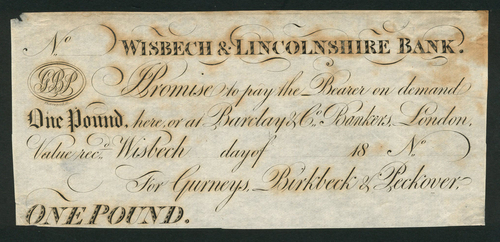 No
WISBECH & LINCOLNSHIRE BANK.
GBP
I Promise to pay the Bearer on demand
One Pound, here, or at Barclay & Co. Bankers, London,
Value recd. Wisbech day of 18 No
For Gurneys, Birkbeck & Peckover.
ONE POUND.